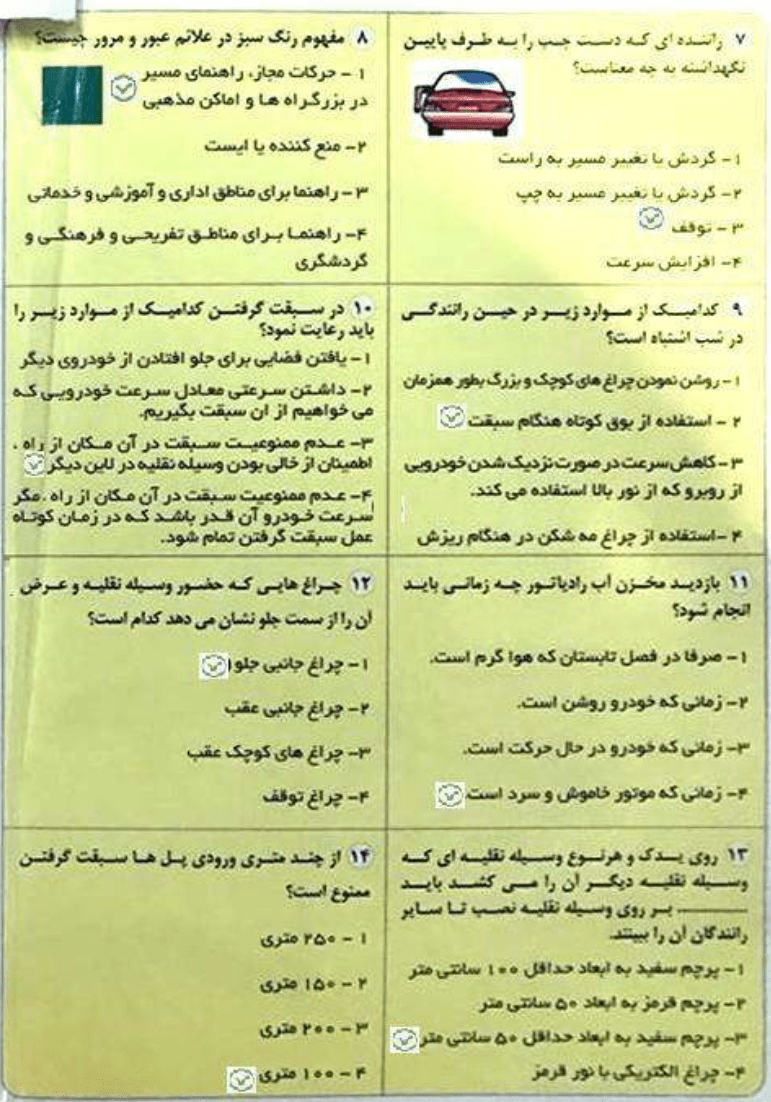 ۷ راننده ای که دست چپ را به طرف پایین
نگهداشته به چه معناست؟
۱- گردش یا تغییر مسیر به راست
۲- گردش یا تغییر مسیر به چپ
۳- توقف
۴- افزایش سرعت
۸ مفهوم رنگ سبز در علائم عبور و مرور چیست؟
۱- حرکات مجاز، راهنمای مسیر
در بزرگراه ها و اماکن مذهبی
۲- منع کننده یا ایست
۳- راهنما برای مناطق اداری و آموزشی و خدماتی
۴- راهنما برای مناطق تفریحی و فرهنگی و
گردشگری
۹ کدامیک از موارد زیر در حین رانندگی
در شب اشتباه است؟
۱- روشن نمودن چراغ های کوچک و بزرگ بطور همزمان
۲- استفاده از بوق کوتاه هنگام سبقت
۳- کاهش سرعت در صورت نزدیک شدن خودرویی
از روبرو که از نور بالا استفاده می کند.
۴- استفاده از چراغ مه شکن در هنگام ریزش
۱۰ در سبقت گرفتن کدامیک از موارد زیر را
باید رعایت نمود؟
۱- یافتن فضایی برای جلو افتادن از خودروی دیگر
۲- داشتن سرعتی معادل سرعت خودرویی که
می خواهیم از ان سبقت بگیریم.
۳- عدم ممنوعیت سبقت در آن مکان از راه ،
اطمینان از خالی بودن وسیله نقلیه در لاین دیگر
۴- عدم ممنوعیت سبقت در آن مکان از راه ، مگر
سرعت خودرو آن قدر باشد که در زمان کوتاه
عمل سبقت گرفتن تمام شود.
۱۱ بازدید مخزن آب رادیاتور چه زمانی باید
انجام شود؟
۱- صرفا در فصل تابستان که هوا گرم است.
۲- زمانی که خودرو روشن است.
۳- زمانی که خودرو در حال حرکت است.
۴- زمانی که موتور خاموش و سرد است
۱۲ چراغ هایی که حضور وسیله نقلیه و عرض
آن را از سمت جلو نشان می دهد کدام است؟
۱- چراغ جانبی جلو
۲- چراغ جانبی عقب
۳- چراغ های کوچک عقب
۴- چراغ توقف
۱۳ روی یدک و هرنوع وسیله نقلیه ای که
وسیله نقلیه دیگر آن را می کشد باید
.......... بر روی وسیله نقلیه نصب تا سایر
رانندگان آن را ببینند.
۱- پرچم سفید به ابعاد حداقل ۱۰۰ سانتی متر
۲- پرچم قرمز به ابعاد ۵۰ سانتی متر
۳- پرچم سفید به ابعاد حداقل ۵۰ سانتی متر
۴- چراغ الکتریکی با نور قرمز
۱۴ از چند متری ورودی پل ها سبقت گرفتن
ممنوع است؟
۱- ۲۵۰ متری
۲- ۱۵۰ متری
۳- ۲۰۰ متری
۴- ۱۰۰ متری